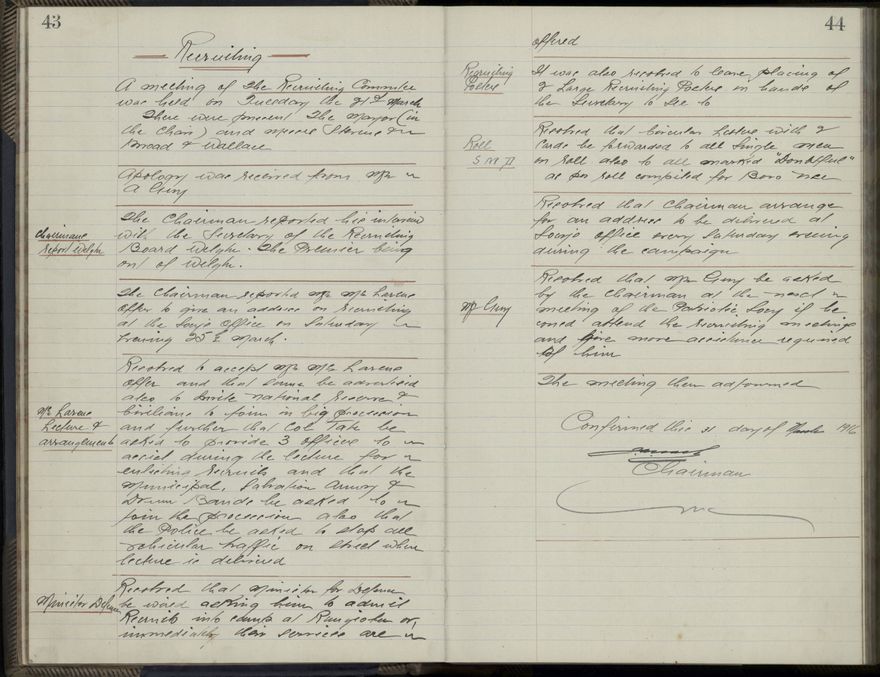 43
Recruiting
A meeting of the Recruiting Committee
was held on Tuesday the 21st March
There were present The Mayor (in
the Chair) and Messrs
Broad & Wallace
Apology was received from Mr
A Guy
Chairmans
report Welgtn
The Chairman reported his interview
with the Secretary of the Recruiting
Board Welgtn. The Premier being
out of Welgtn.
The Chairman reported Mr McLarens
offer to give an address on recruiting
at the Socys Office on Saturday
Evening 25th March.
Mr Larens
Lecture &
arrangements
Resolved to accept Mr McLarens
offer and that same be advertised
also to invite National Reserve &
Civilians to join in big procession
and further that Col Tate be
asked to provide 3 officers to
assist during the lecture for
enlisting recruits and that the
Municipal, Salvation Army &
Drum Bands be asked to
join the procession also that
the Police be asked to stop all
vehicular traffic on street when
lecture is delivered
Minister Defence
Resolved that Minister for Defence
be wired asking him to admit
Recruits into camp at Rangiotu
immediately their services are
44
offered
Recruiting
Posters
It was also resolved to leave placing of
2 Large Recruiting Posters in hands of
the Secretary to see to
Roll
Resolved that Circular Letter with 2
Cards be forwarded to all single men
on roll also to all marked "Doubtful"
as per roll compiled for Boro
Resolved that Chairman arrange
for an address to be delivered at
Socys office every Saturday evening
during the campaign
Mr Guy
Resolved that Mr Guy be asked
by the Chairman at the next
meeting of the Patriotic Socy if he
would attend the recruiting meetings
and give more assistance required
of him
The meeting then adjourned
Confirmed this 31 day of March 1916
Chairman